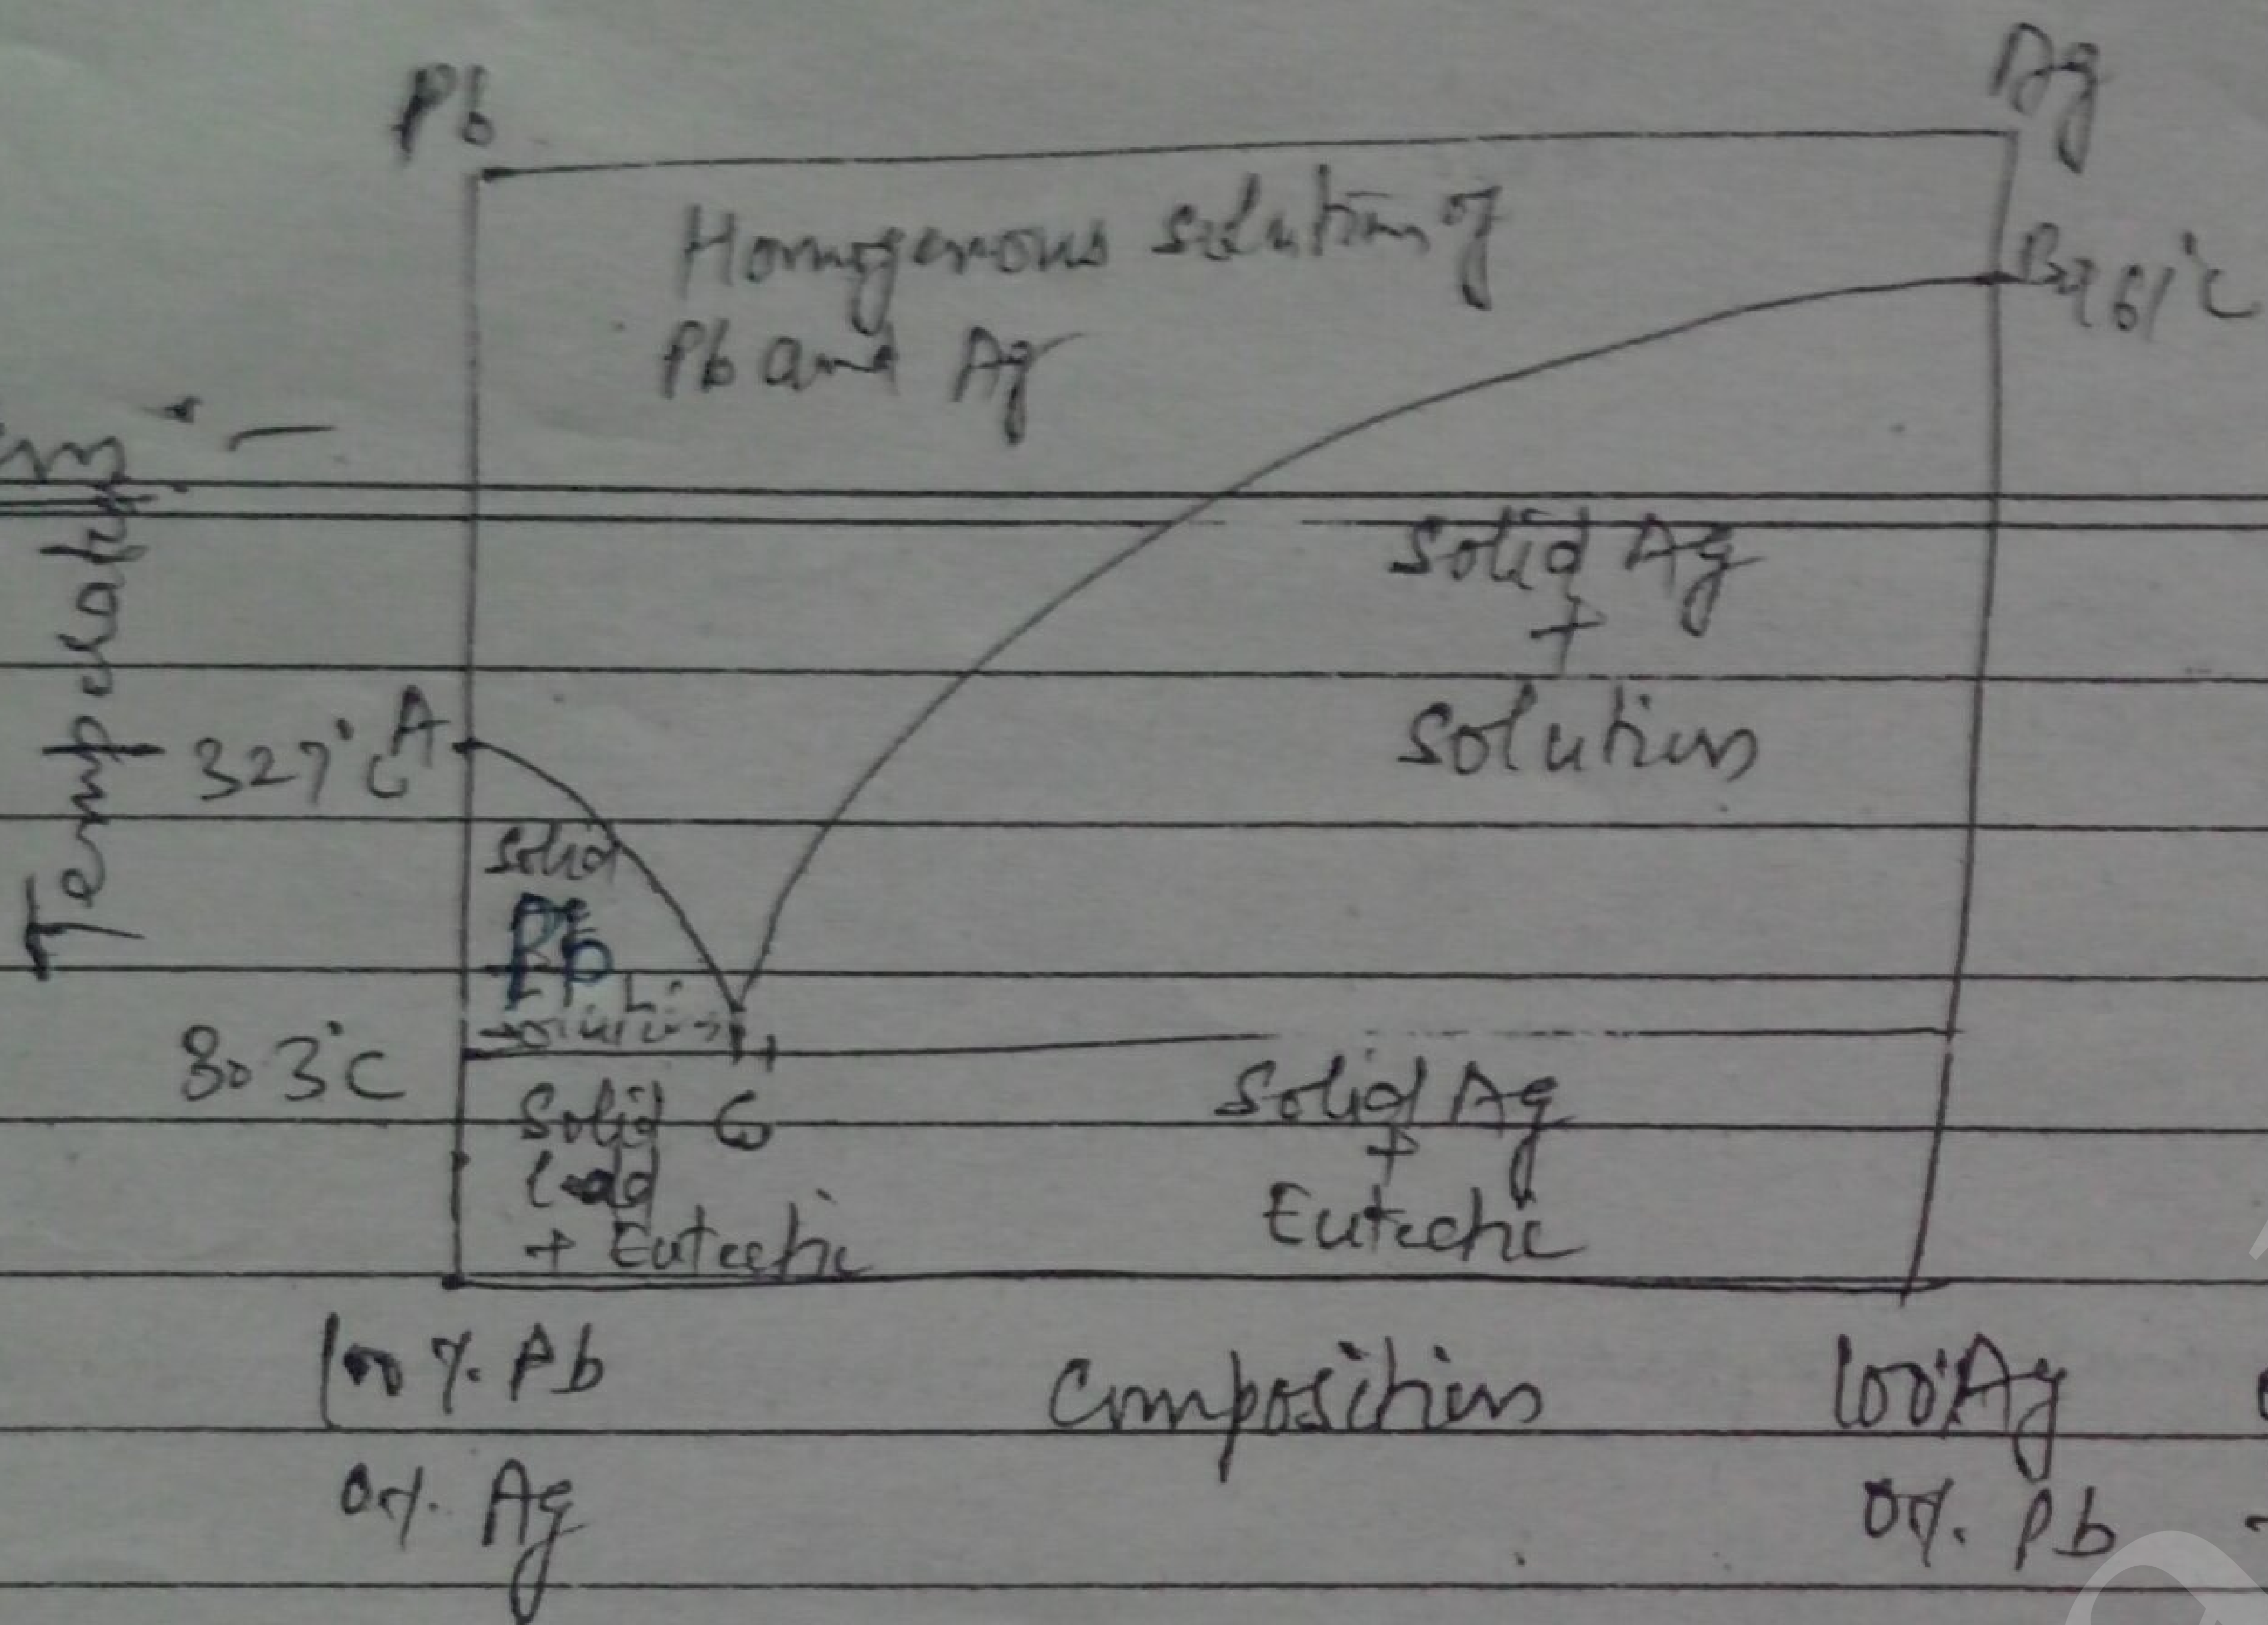 Pb
Ag
Homogenous solution of
Pb and Ag
B961°C
Temperature
solid Ag
+
solution
327°C A
solid
Pb
+
solution
303°C
Solid Ag
+
Eutectic
Solid
lead
+ Eutectic
C
100 %. Pb
Composition
100%Ag
0%. Ag
0%. Pb